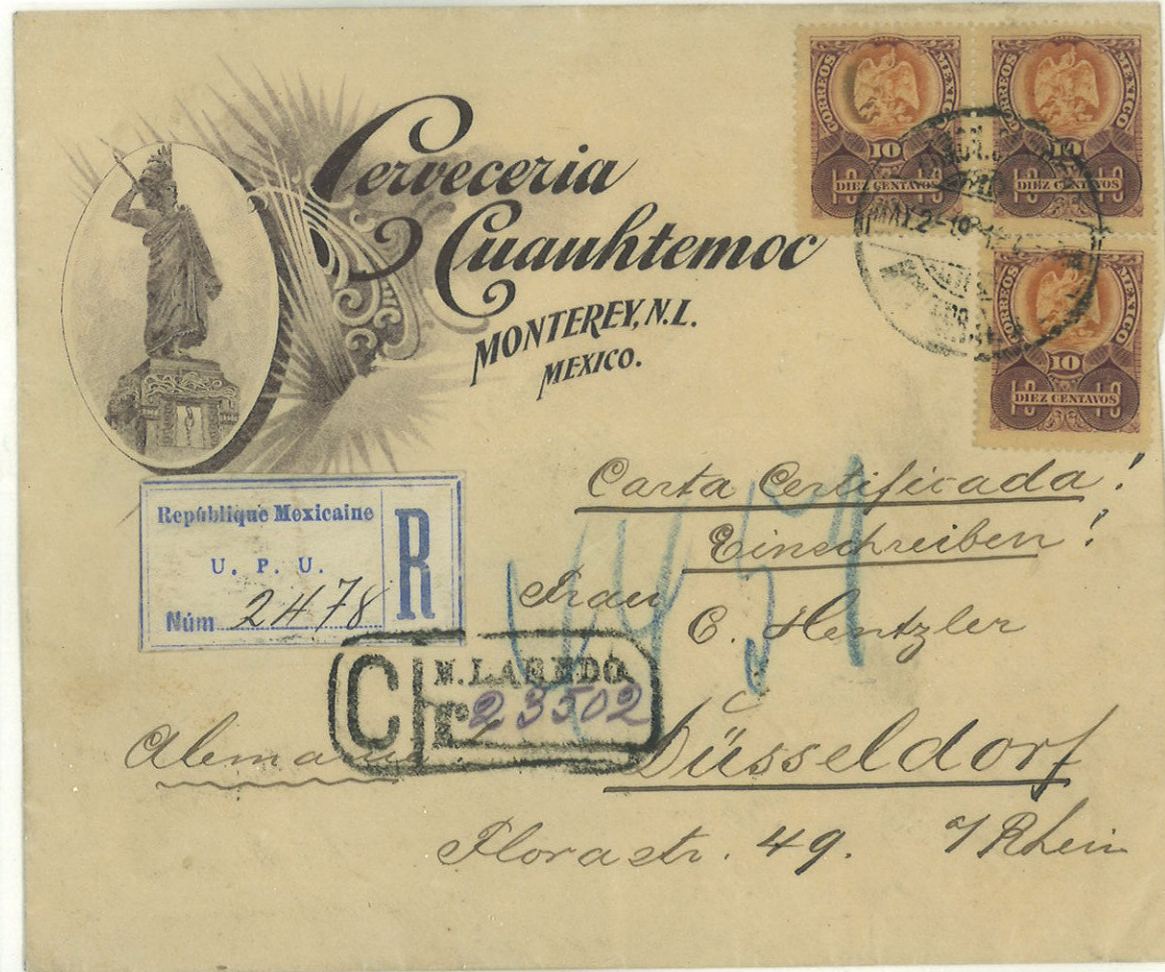 Cerveceria
Cuauhtemoc
MONTEREY, N.L.
MEXICO.
CORREOS MEXICO
10
10 DIEZ CENTAVOS 10
CORREOS MEXICO
10
10 DIEZ CENTAVOS 10
CORREOS MEXICO
10
10 DIEZ CENTAVOS 10
MAY. 2
República Mexicaine
U. P. U.
Núm 2478
R
Carta Certificada!
Einschreiben!
Frau
C. Hentzler
N. LAREDO
C 23502
Alemania
Düsseldorf
Florastr. 49. a/Rhein